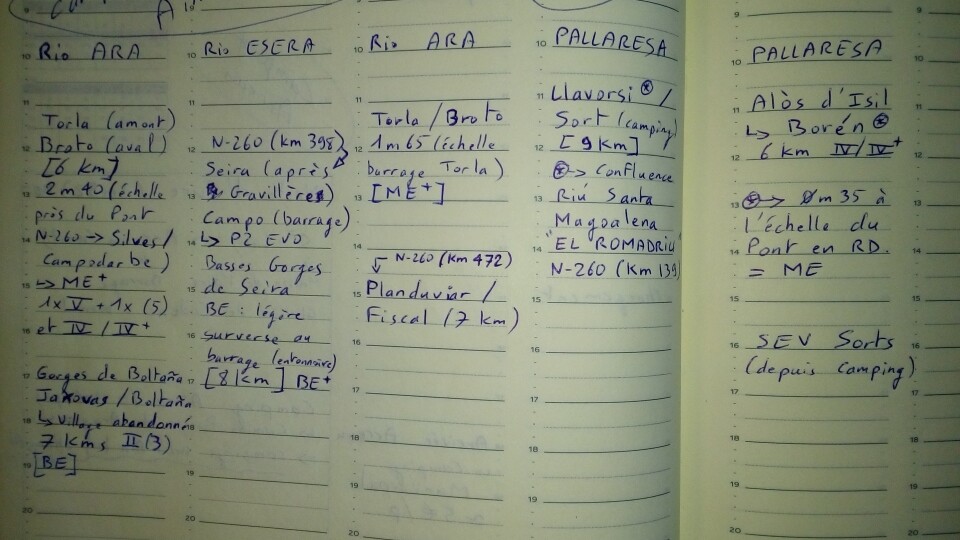 Rio ARA
Torla (amont)
Broto (aval)
[6 km]
2m40 (échelle
près du Pont
N-260 → Silves/
Campodarbe)
↳ ME+
1x V + 1x (5)
et IV / IV+
Gorges de Boltaña
Janovas / Boltaña
↳ village abandonné
7 kms II (3)
[BE]
Rio ESERA
N-260 (km 398)
Seira (après
Gravillères)
Campo (barrage)
↳ P2 EVO
Basses Gorges
de Seira
BE : légère
surverse au
barrage (entonnoire)
[8 km] BE+
Rio ARA
Torla / Broto
1m65 (échelle
barrage Torla)
[ME+]
N-260 (km 472)
Planduviar /
Fiscal (7 km)
PALLARESA
Llavorsi ⊛ /
Sort (camping)
[9 km]
⊛→ Confluence
Riú Santa
Magdalena
"EL ROMADRIU"
N-260 (Km 139)
PALLARESA
Alòs d'Isil
↳ Borén ⊛
6 km IV/IV+
⊛→ 0m35 à
l'échelle du
Pont en RD.
= ME
SEV Sorts
(depuis camping)